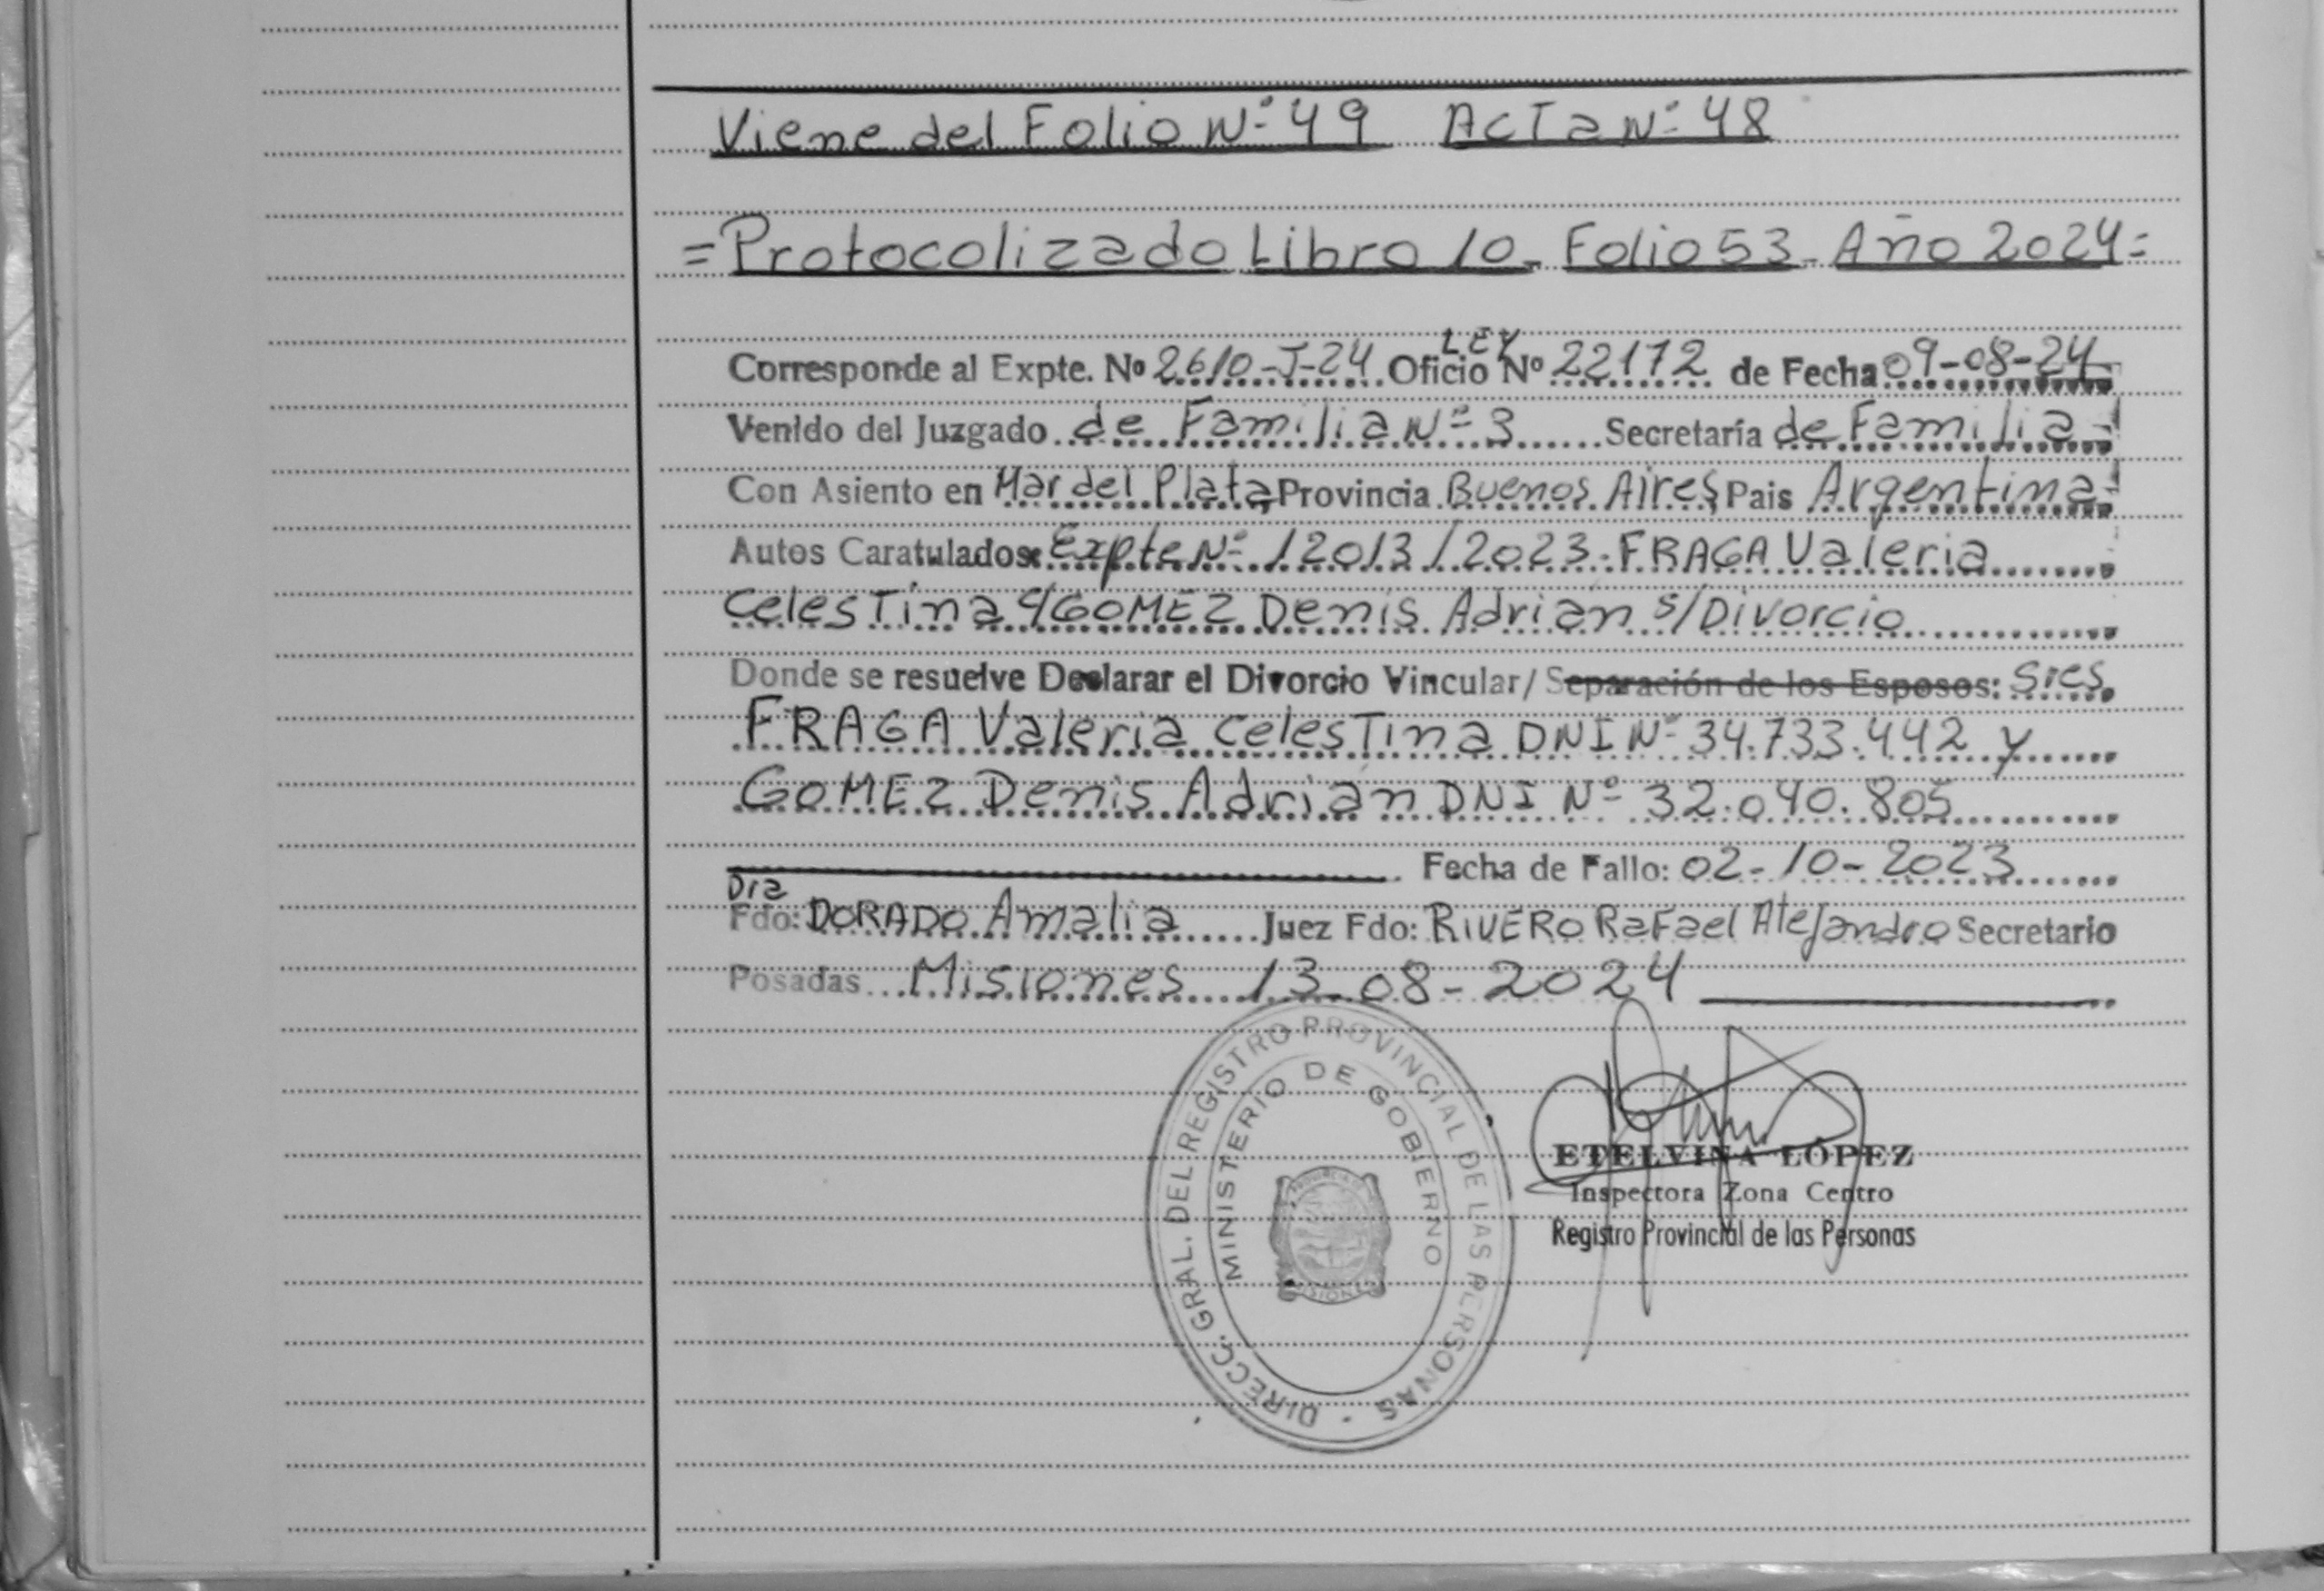 Viene del Folio Nº 49 Acta Nº 48
=Protocolizado Libro 10 - Folio 53 - Año 2024=
LEY
Corresponde al Expte. Nº 2610-J-24 Oficio Nº 22172 de Fecha 09-08-24
Venido del Juzgado de Familia Nº 3 Secretaría de Familia
Con Asiento en Mar del Plata Provincia Buenos Aires Pais Argentina
Autos Caratulados: Expte Nº 12013/2023. FRAGA Valeria
Celestina c/GOMEZ Denis Adrian s/Divorcio
Donde se resuelve Declarar el Divorcio Vincular/ Separación de los Esposos: Sres
FRAGA Valeria Celestina DNI Nº 34.733.442 y
GOMEZ Denis Adrian DNI Nº 32.040.805
Fecha de Fallo: 02-10-2023
Dra
Fdo: DORADO Amalia Juez Fdo: RIVERO Rafael Alejandro Secretario
Posadas Misiones 13-08-2024
DIRECC. GRAL. DEL REGISTRO PROVINCIAL DE LAS PERSONAS -
MINISTERIO DE GOBIERNO
ETELVINA LÓPEZ
Inspectora Zona Centro
Registro Provincial de las Personas